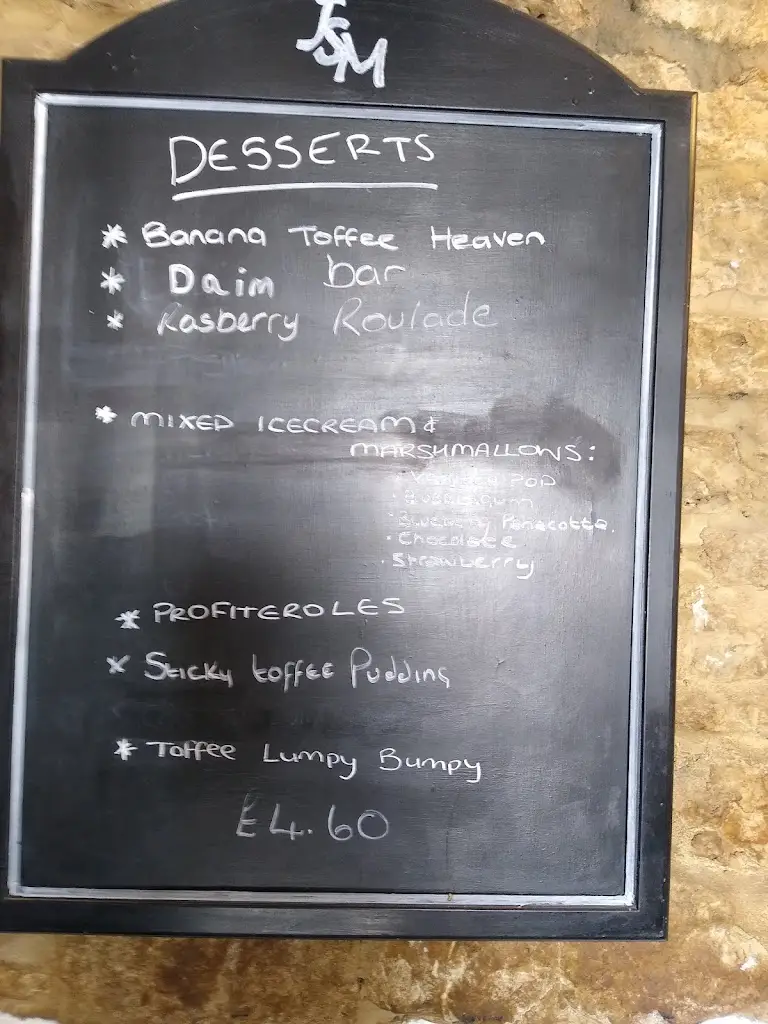 JSM
DESSERTS
* Banana Toffee Heaven
* Daim bar
* Rasberry Roulade
* MIXED ICECREAM &
MARSHMALLOWS:
POP
• Bubblegum
• Blueberry Panacotta.
• Chocolate
• Strawberry
* PROFITEROLES
* Sticky toffee Pudding
* Toffee Lumpy Bumpy
£4.60